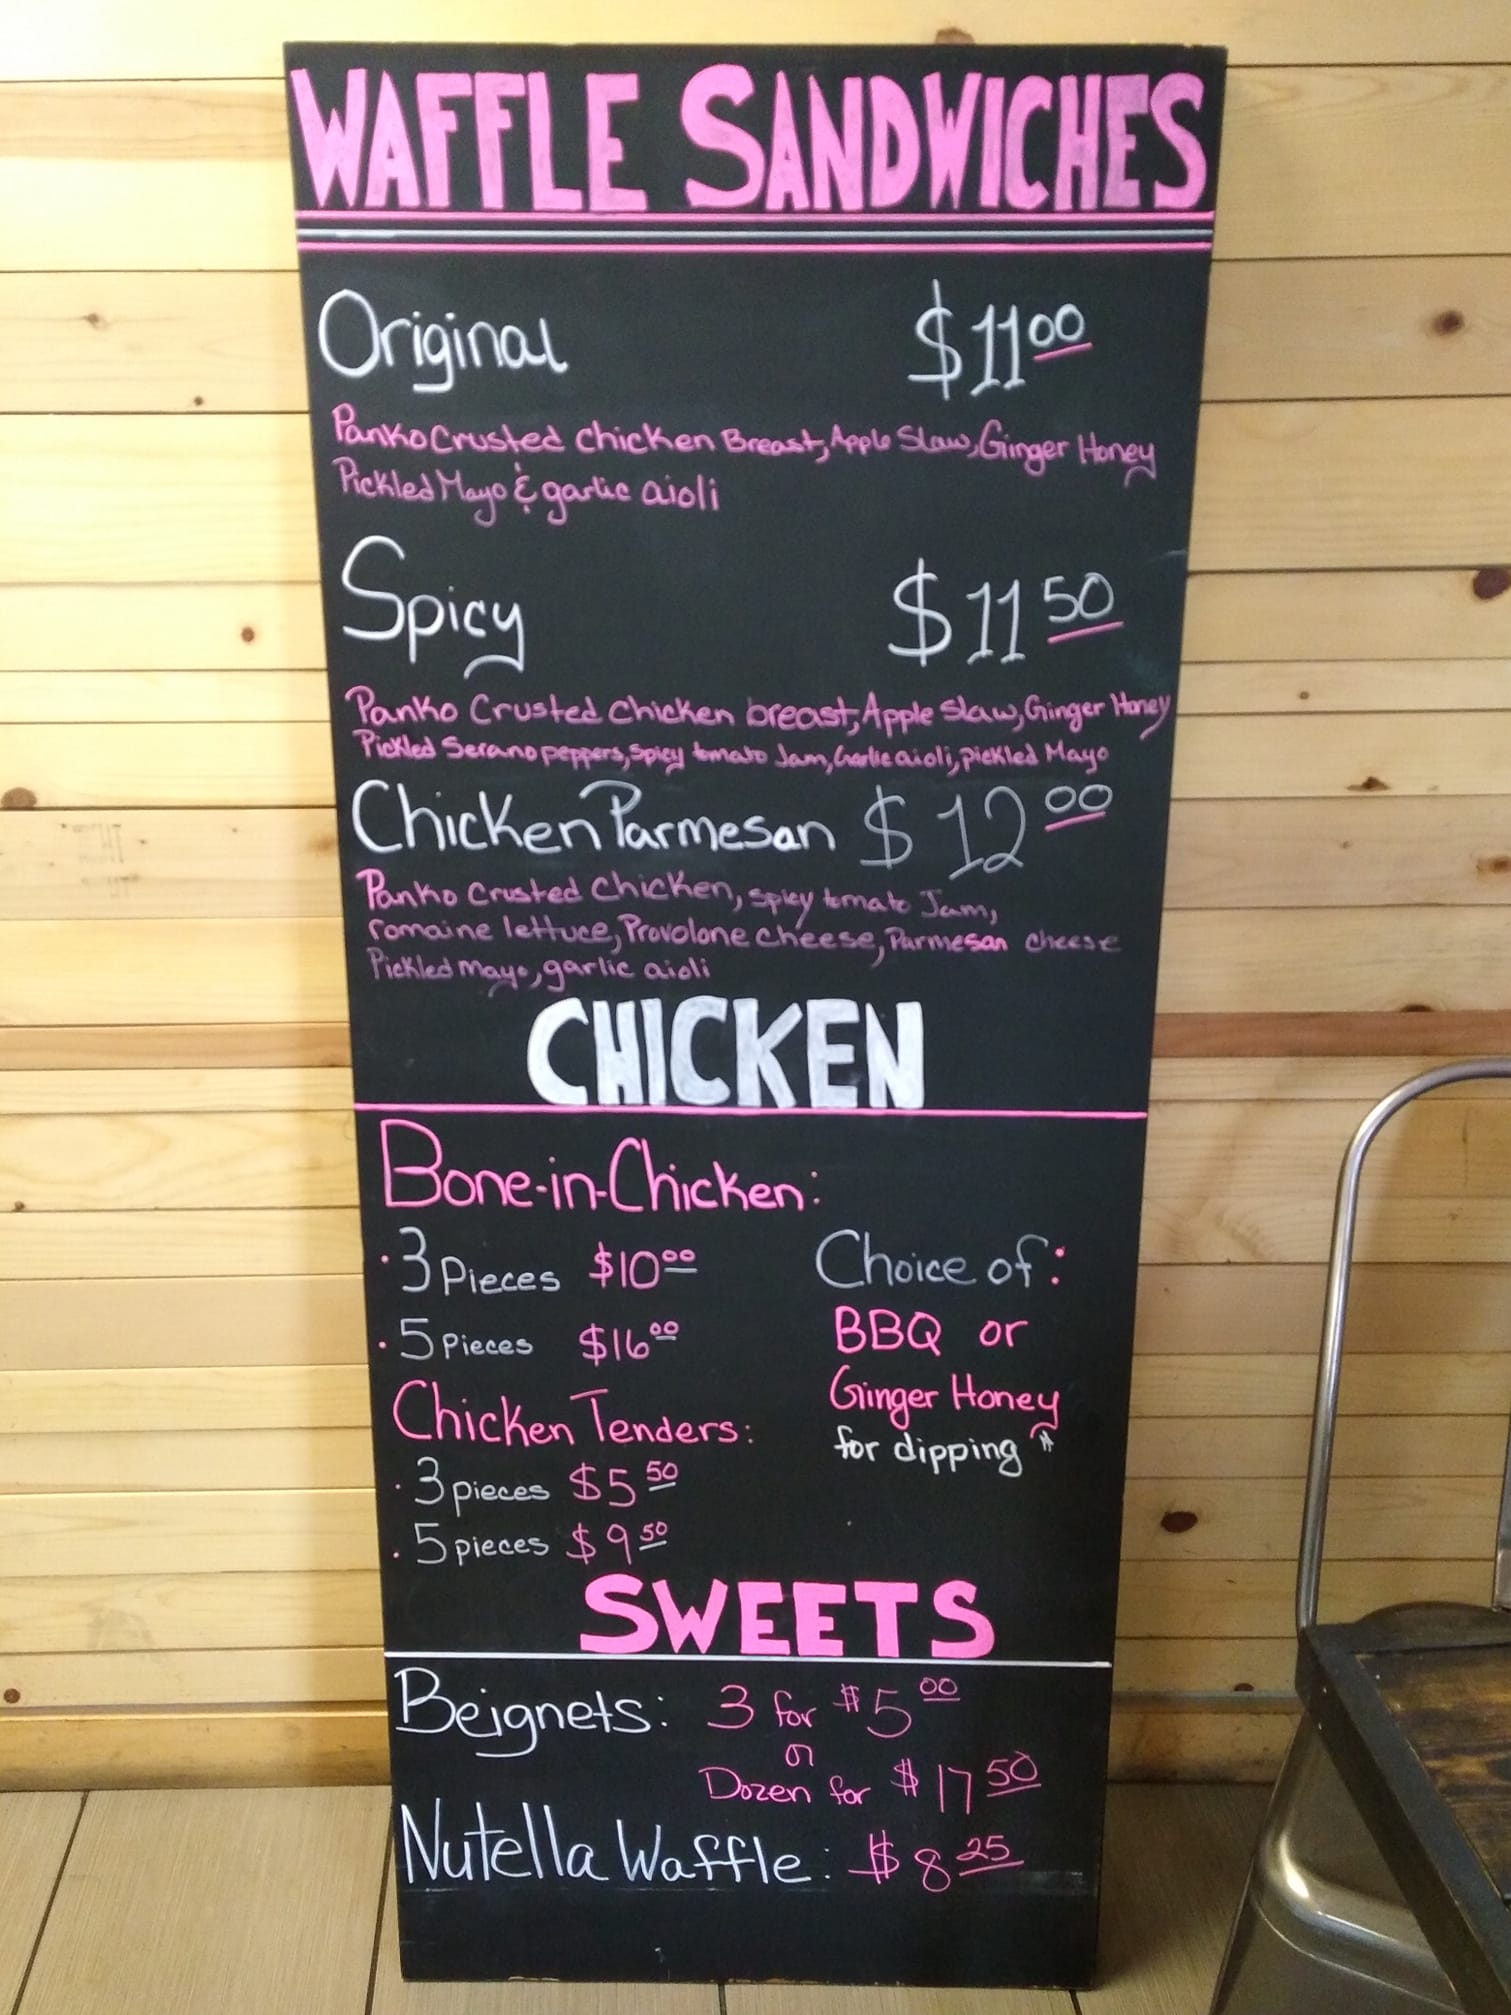 WAFFLE SANDWICHES
Original $11.00
Panko Crusted Chicken Breast, Apple Slaw, Ginger Honey
Pickled Mayo & garlic aioli
Spicy $11.50
Panko Crusted Chicken breast, Apple Slaw, Ginger Honey
Pickled Serano peppers, Spicy tomato Jam, Garlic aioli, pickled Mayo
Chicken Parmesan $12.00
Panko Crusted Chicken, spicy tomato Jam,
romaine lettuce, Provolone cheese, Parmesan cheese
Pickled mayo, garlic aioli
CHICKEN
Bone-in-Chicken:
• 3 Pieces $10.00
• 5 pieces $16.00
Chicken Tenders:
• 3 pieces $5.50
• 5 pieces $9.50
Choice of:
BBQ or
Ginger Honey
for dipping
SWEETS
Beignets: 3 for $5.00
or
Dozen for $17.50
Nutella Waffle: $8.25